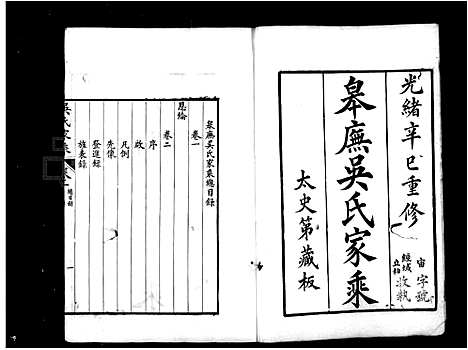 光緒辛巳重修
皋廡吳氏家乘
太史第藏板
宙字號
收執
皋廡吳氏家乘總目錄
卷一
恩綸
卷二
序
啟
凡例
先像
登進錄
旌表錄
吳氏家乘
總目錄
一